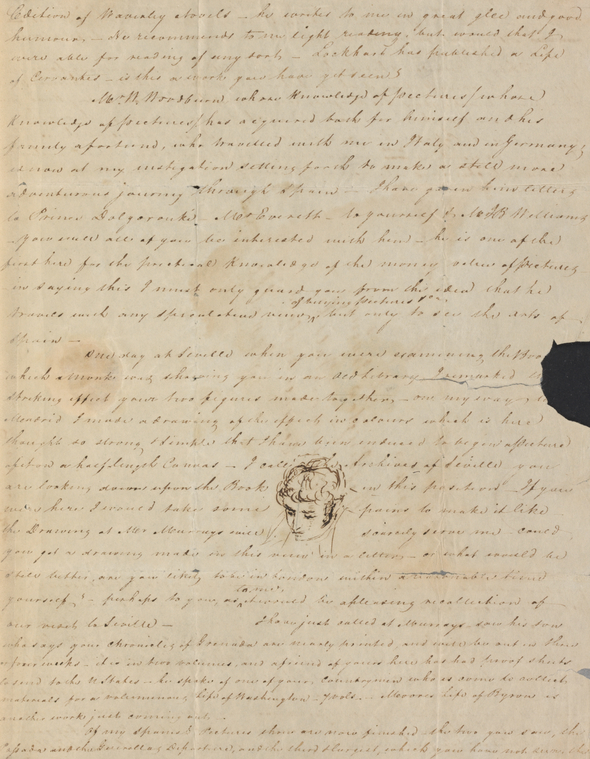 Edition of Waverley Novels — he writes to me in great glee and good
humour. — He recommends to me light reading, but would that I
were able for reading of any sort — Lockhart has published a Life
of Cervantes — is this a work you have yet seen?
Mr W. Woodburn whose Knowledge of pictures (whose
Knowledge of pictures) has acquired both for himself and his
family a fortune, who travelled with me in Italy and in Germany,
is now at my instigation setting forth to make a still more
adventurous journey through Spain — I have given him letters
to Prince Dolgorouki — Mr Everett — to yourself & Mr
you will all of you be interested with him — he is one of the
first here for the practical Knowledge of the money value of Pictures
in saying this I must only guard you from the idea that he
of buying pictures
travels with any speculative views, but only to see the Arts of
Spain —
One day at Seville when you were examining the Book
which a Monk was showing you in an old Library I remarked
striking effect your two figures made together, — on my way to
Madrid I made a drawing of the effect in colours which is here
thought so strong & simple that I have been induced to begin a picture
upon a half length Canvas — I call Archives of Seville you
are looking down upon the Book in this position If you
were here I would take some pains to make it like
the Drawing at Mr Murrays will scarcely serve me could
you get a drawing made in this view in a letter, — or what would be
still better, are you likely to be in London within a reasonable time
yourself? — perhaps to you, as to me it would be a pleasing recollection of
our visit to Seville — I have just called at Murrays, saw his son
who says your chronicle of Granada are nearly printed, and will be out in three
or four weeks — it is in two volumes, and a friend of yours here has had proof sheets
to send to the U States — he spoke of one of your countrymen who is come to collect
materials for a voluminous life of Washington — Moores life of Byron is
another work just coming out. —
Of my Spanish pictures three are now finished the two you saw, the
Posada and the Guerillas Departure, and the third & largest, which you have not seen, the